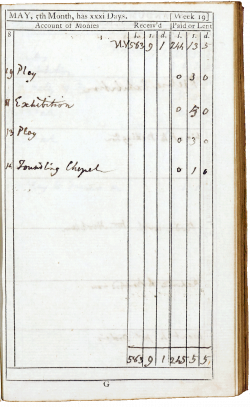 MAY, 5th Month, has xxxi Days. Week 19
Account of Monies Receiv'd Paid or Lent
8 L. s. d. l. s. d.
563 9 1 244 13 5
Play 0 3 0
Exhibition 0 5 0
13 Play 0 3 0
14 Foundling Chapel 0 1 0
563 9 1 245 5 5
G